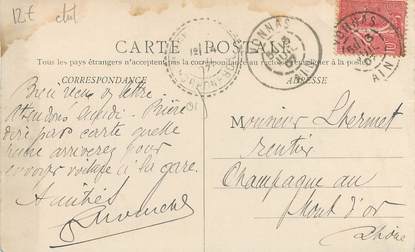 CARTE POSTALE
Tous les pays étrangers n'acceptent pas la correspondance au recto
CORRESPONDANCE
ADRESSE
Bien reçu lettre
Attendons lundi. Prière
dire par carte quelle
heure arriverez pour
envoyer voiture à la gare.
Amitiés
Monsieur Lhermet
rentier
Champagne au
Mont d'or
Rhône